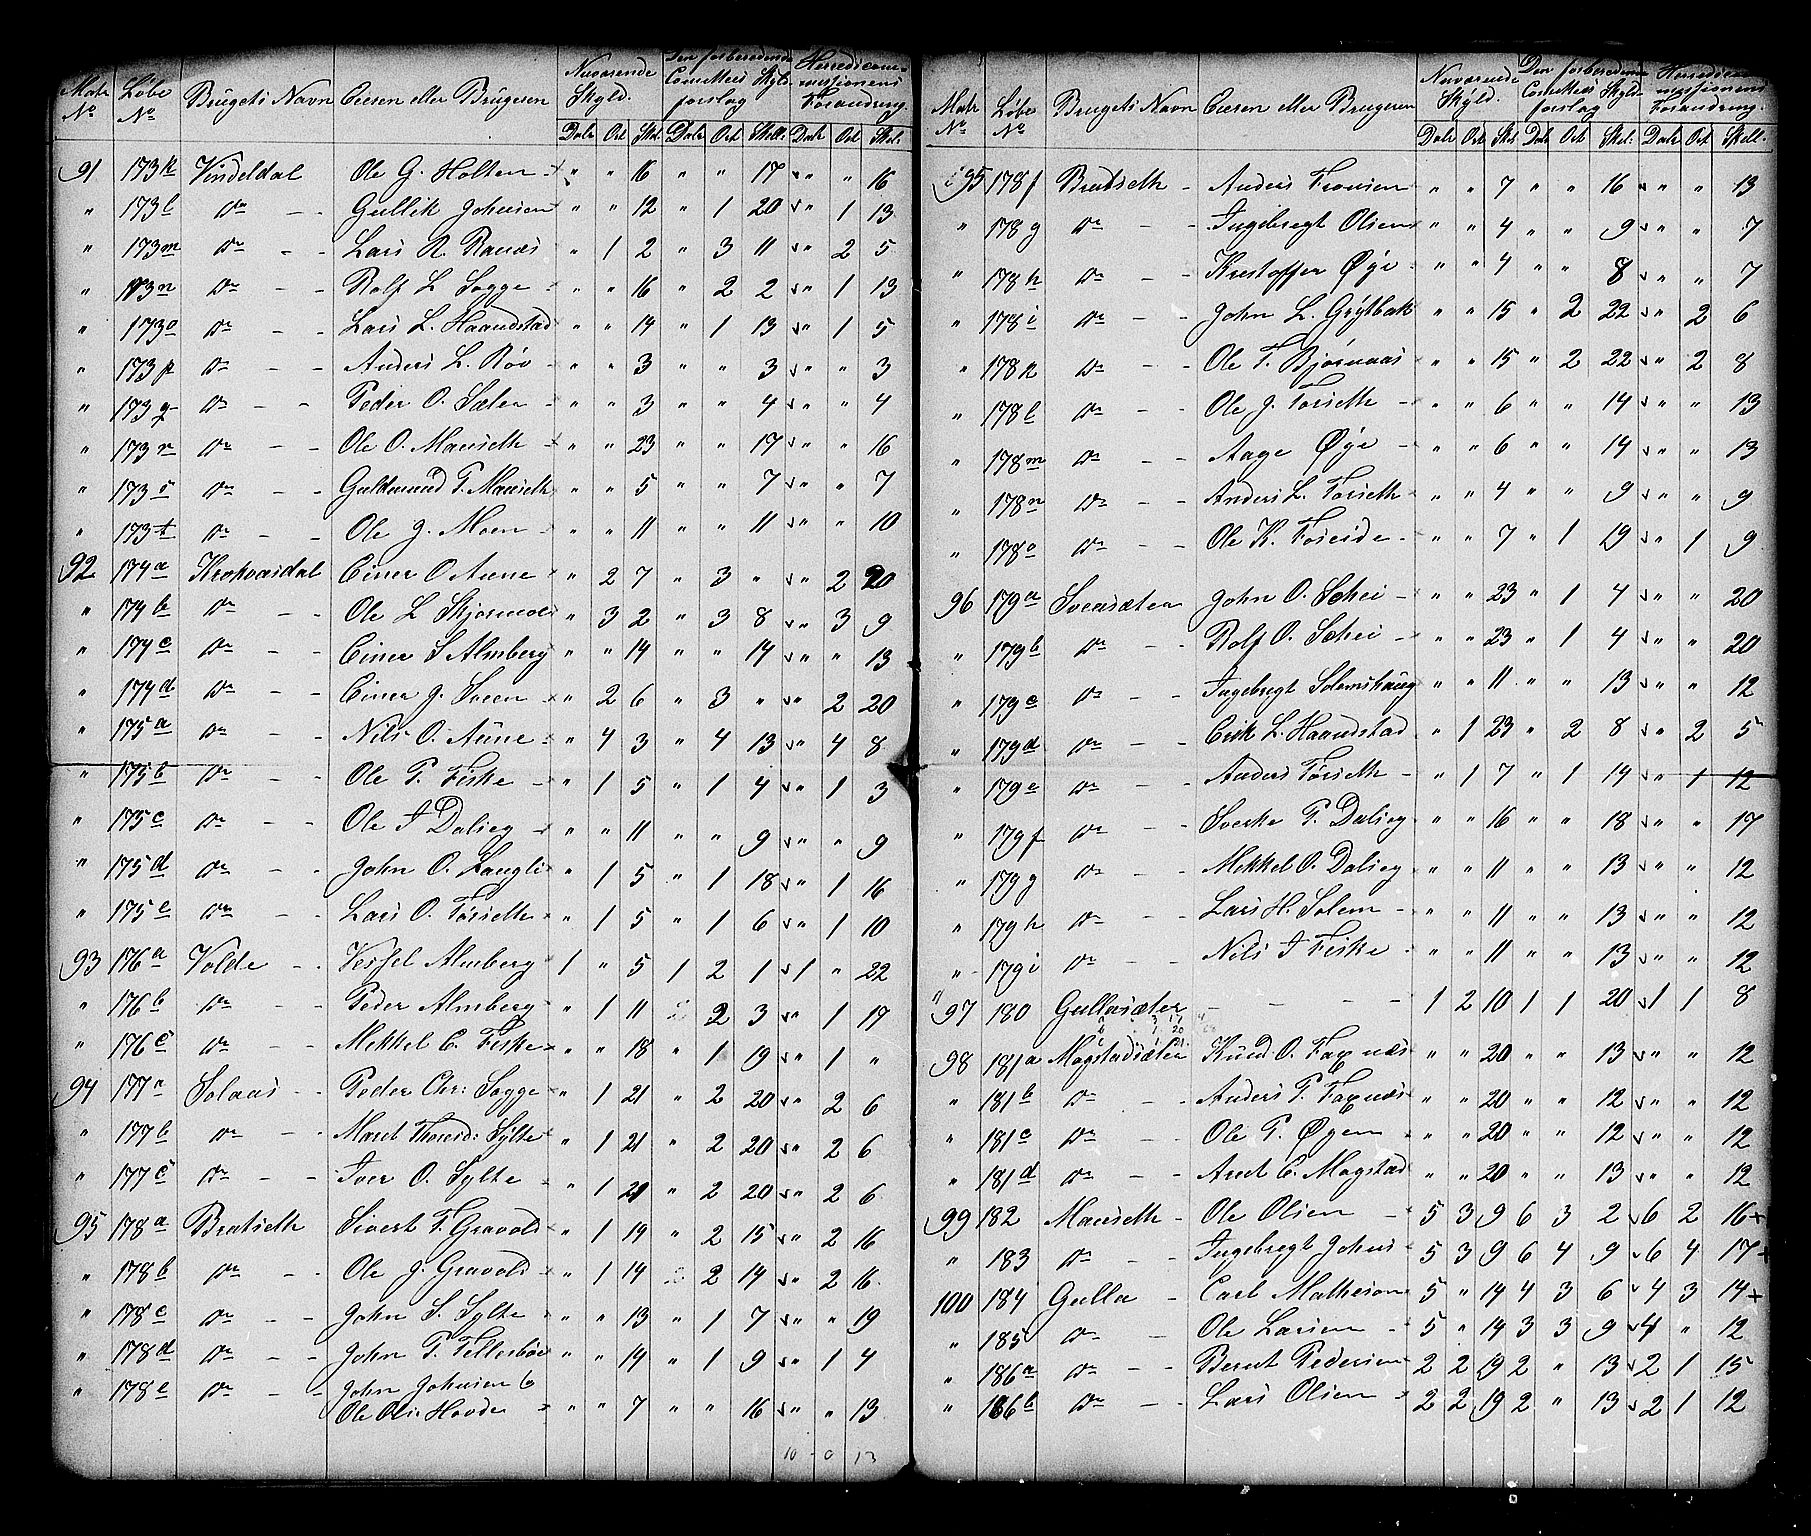 Matr Løbe Brugets Navn Eieren eller Brugeren Nuværende Den forberedende Herredscom-
No No Skyld. Comittees Skyld- missionens
forslag Forandring.
Dalr Ort Skel Dalr Ort Skill. Dalr Ort Skel.
91 173k Vindeldal Ole G. Holten " " 16 " " 17 " " 16
" 173l Do - - Gullik Johnsen " " 12 " 1 20 " 1 13
" 173m Do - - Lars R. Ranæs " 1 2 " 3 11 " 2 5
" 173n Do - - Rolf L Sogge " " 16 " 2 2 " 1 13
" 173o Do - - Lars L. Haandstad " " 14 " 1 13 " 1 5
" 173p Do - - Anders L. Røv " " 3 " " 3 " " 3
" 173q Do - - Peder O. Sæter " " 3 " " 4 " " 4
" 173r Do - - Ole O. Mauseth " " 23 " " 17 " " 16
" 173s Do - - Guldmund P. Mauseth " " 5 " " 7 " " 7
" 173t Do - - Ole J. Moen " " 11 " " 11 " " 10
92 174a Krokvasdal Einer O Aune " 2 7 " 3 " " 2 20
" 174b Do - - Ole L " 3 2 " 3 8 " 3 9
" 174c Do - - Einer S Almberg " " 14 " " 14 " " 13
" 174d Do - - Einer J. Sveen " 2 6 " 3 " " 2 20
" 175a Do - - Nils O. Aune " 4 3 " 4 13 " 4 8
" 175b Do - - Ole P. Fiske " 1 5 " 1 4 " 1 3
" 175c Do - - Ole I Dalseg " " 11 " " 9 " " 9
" 175d Do - - John O. Langli " 1 5 " 1 18 " 1 16
" 175e Do - - Lars O. Torseth " 1 5 " 1 6 " 1 10
93 176a Volde - - Vessel Almberg 1 " 5 1 2 1 1 " 22
" 176b Do - - Peder Almberg " 1 11 2 3 " 1 17
" 176c Do - - Mekkel E. Fiske " " 18 " 1 19 " 1 "
94 177a Solaas - - Peder Chr: Sogge " 1 21 " 2 20 " 2 6
" 177b Do - - Maret Thorsd: Sylte " 1 21 " 2 20 " 2 6
" 177c Do - - Iver O. Sylte " 1 21 " 2 20 " 2 6
95 178a Bratseth Sivert T. Gravold " 1 19 " 2 15 " 2 16
" 178b Do - - Ole J. Gravold " 1 14 2 14 " 2 16
" 178c Do - - John S. Sylte " " 13 " 1 7 " " 19
" 178d Do - - John P. Tellesbøe " " 14 " 1 9 " 1 4
" 178e Do - - John Johnsen &
Ole Ols: Hovde " " 7 " " 16 " " 13
10 - 0 13
Matr Løbe Brugets Navn Eieren eller Brugeren Nuværende Den forberedende Herredscom-
No No Skyld. Comittees Skyld- missionens
forslag Forandring.
Dalr Ort Skel Dalr Ort Skel: Dalr Ort Skell.
95 178f Bratseth - Anders Fronsen " " 7 " " 16 " " 13
" 178g Do - - Ingebregt Olsen " " 4 " " 9 " " 7
" 178h Do - - Krestoffer Øye " " 4 " " 8 " " 7
" 178i Do - - John L. Grytbak " " 15 " 2 22 " 2 6
" 178k Do - - Ole T. Bjørnaas " " 15 " 2 22 " 2 8
" 178l Do - - Ole J. Torseth " " 6 " " 14 " " 13
" 178m Do - - Aage Øye " " 6 " " 14 " " 13
" 178n Do - - Anders L. Torseth " " 4 " " 9 " " 9
" 178o Do - - Ole K. Forseide " " 7 " 1 19 " 1 9
96 179a Svensæter John O. Schei " " 23 " 1 4 " " 20
" 179b Do - - Rolf O. Schei " " 23 " 1 4 " " 20
" 179c Do - - Ingebregt Solemshaug " " 11 " " 13 " " 12
" 179d Do - - Erik L. Haandstad " 1 23 " 2 8 " 2 5
" 179e Do - - Anders Torseth " 1 7 " 1 14 " 1 12
" 179f Do - - Sverke P. Dalseg " " 16 " " 18 " " 17
" 179g Do - - Mekkel O. Dalseg " " 11 " " 13 " " 12
" 179h Do - - Lars H. Solem " " 11 " " 13 " " 12
" 179i Do - - Nils I Fiske " " 11 " " 13 " " 12
97 180 Gullasæter - - - 1 2 10 1 1 20 1 1 8
98 181a Mogstadsæter Knud O. Foxnæs " " 20 " " 13 " " 12
" 181b Do - - Anders P. Foxnæs " " 20 " " 12 " " 12
" 181c Do - - Ole P. Øyen " " 20 " " 12 " " 12
" 181d Do - - Arnt E. Mogstad " " 20 " " 13 " " 12
99 182 Mauseth - Ole Olsen - 5 3 9 6 3 2 6 2 16+
" 183 Do - - Ingebregt Johns 5 3 9 6 4 9 6 4 17+
100 184 Gulla - Carl Matheson 5 " 14 4 3 6 4 3 14+
" 185 Do - Ole Larsen 5 " 14 3 3 9 4 " 12
" 186a Do - - Bernt Pedersen 2 2 19 2 " 13 2 1 15
" 186b Do - - Lars Olsen - 2 2 19 2 " 13 2 1 12